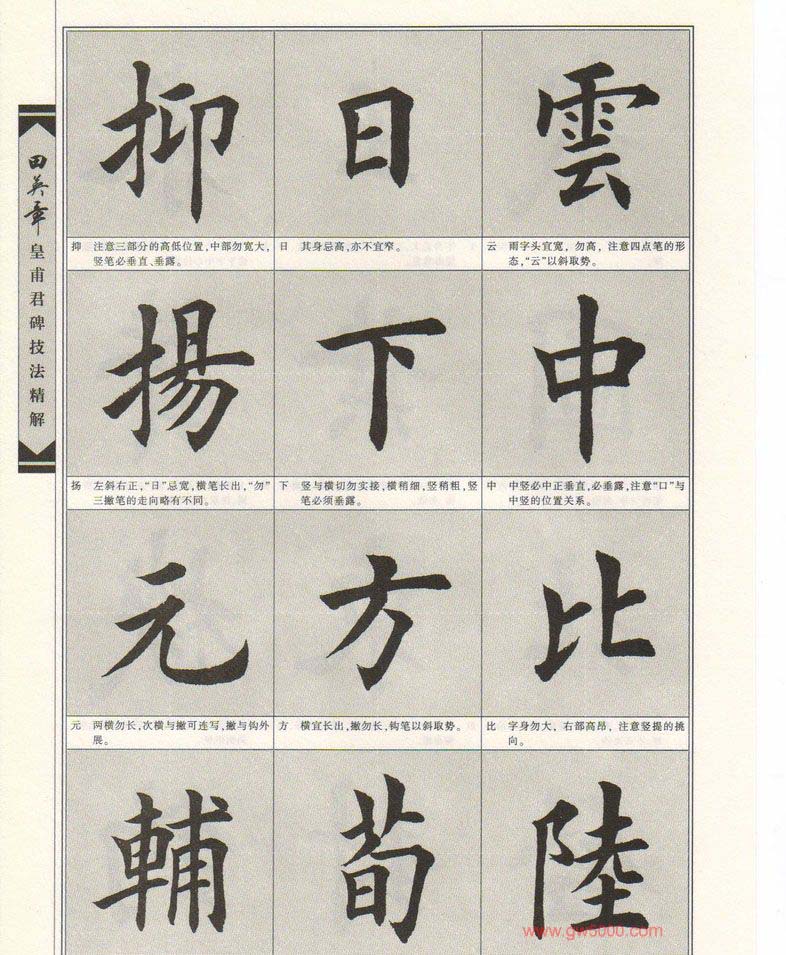 田英章皇甫君碑技法精解
抑 日 雲
抑 注意三部分的高低位置,中部勿宽大,
竖笔必垂直、垂露。
日 其身忌高,亦不宜窄。
云 雨字头宜宽，勿高，注意四点笔的形
态,“云”以斜取势。
揚 下 中
扬 左斜右正，“日”忌宽，横笔长出，“勿”
三撇笔的走向略有不同。
下 竖与横切勿实接，横稍细，竖稍粗，竖
笔必须垂露。
中 中竖必中正垂直,必垂露,注意“口”与
中竖的位置关系。
元 方 比
元 两横勿长,次横与撇可连写,撇与钩外
展。
方 横宜长出,撇勿长,钩笔以斜取势。
比 字身勿大，右部高昂，注意竖提的挑
向。
輔 荀 陸
www.gw5000.com